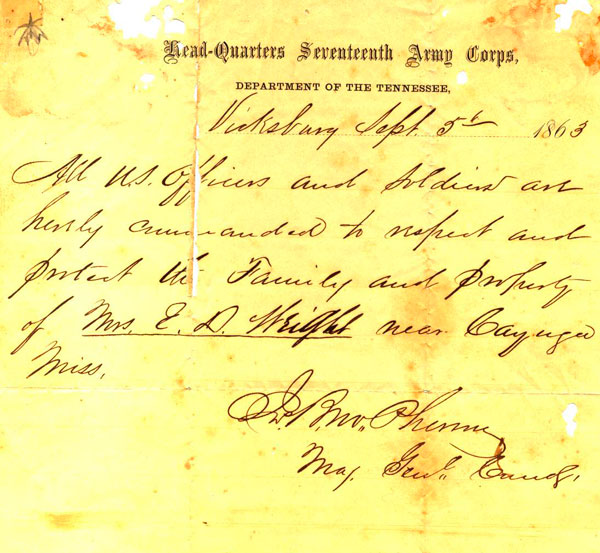 Head-Quarters Seventeenth Army Corps,
DEPARTMENT OF THE TENNESSEE,
Vicksburg Sept. 5th 1863
All U.S. Officers and Soldiers are
hereby commanded to respect and
protect the Family and property
of Mrs. E. D. Wright near Cayuga
Miss.
Jas. B. McPherson
Maj. Genl. Comdg.